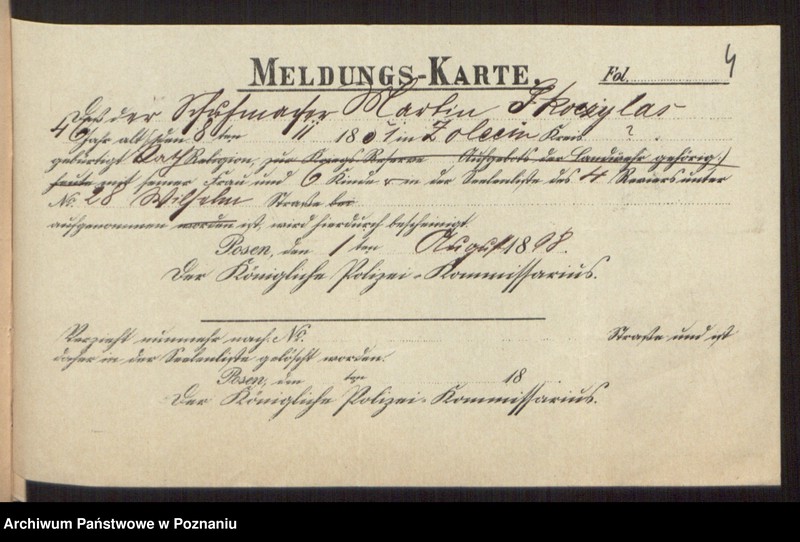 MELDUNGS-KARTE.
Fol. 4
Daß der Schuhmacher Martin Skoczylas
46 Jahr alt den 8 ten 11 1851 in Kreis ?
gebürtigt kath Religion, zur Kriegs-Reserve Aufgebots der Landwehr gehörig,)
heute mit seiner Frau und 6 Kinder in der Seelenliste des 4 Reviers unter
No. 28 Wilhelm Straße bei
aufgenommen worden ist, wird hierdurch bescheinigt.
Posen, den 1 ten August 1898.
Der Königliche Polizei-Kommissarius.
Verzieht nunmehr nach: No. Straße und ist
daher in der Seelenliste gelöscht worden.
Posen, den ten 18
Der Königliche Polizei-Kommissarius.
Archiwum Państwowe w Poznaniu